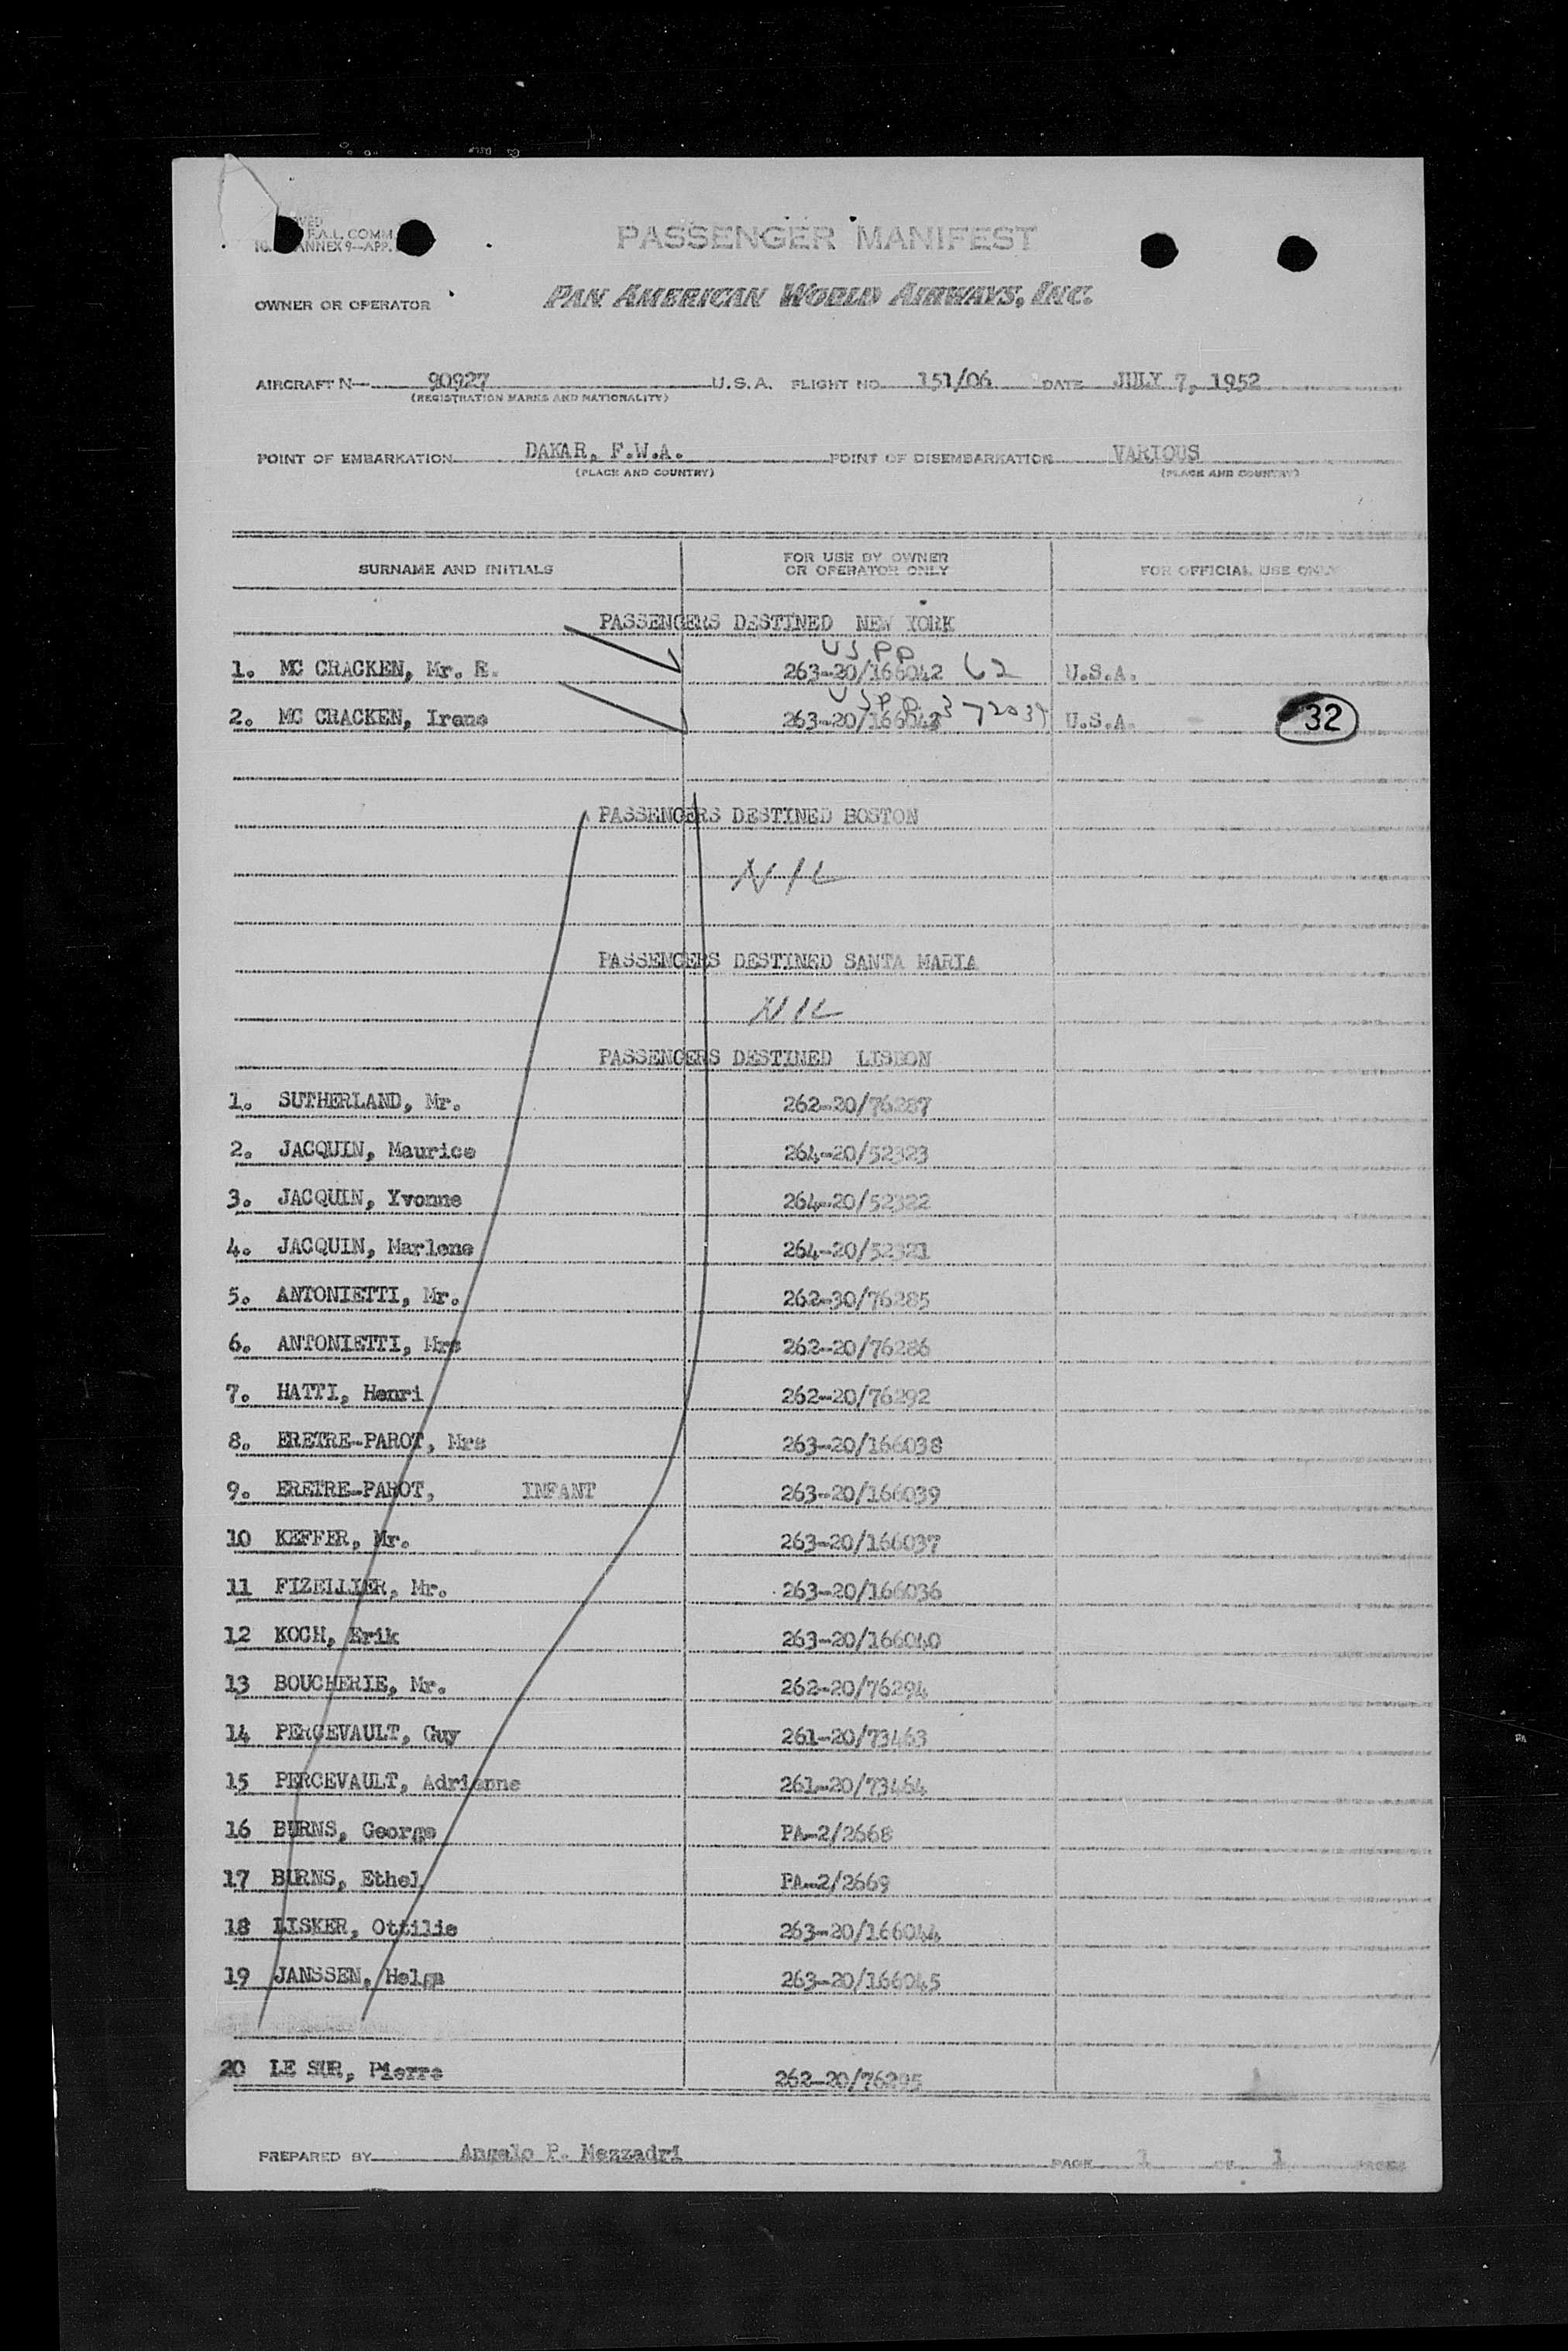 PASSENGER MANIFEST
F.A.L. COMM
ANNEX 9—APP.
OWNER OR OPERATOR PAN AMERICAN WORLD AIRWAYS, INC.
AIRCRAFT N— 90927 U.S.A. FLIGHT NO. 151/06 DATE JULY 7, 1952
(REGISTRATION MARKS AND NATIONALITY)
POINT OF EMBARKATION DAKAR, F.W.A. POINT OF DISEMBARKATION VARIOUS
(PLACE AND COUNTRY) (PLACE AND COUNTRY)
SURNAME AND INITIALS FOR USE BY OWNER OR OPERATOR ONLY FOR OFFICIAL USE ONLY
PASSENGERS DESTINED NEW YORK
USPP
1. MC CRACKEN, Mr. R. 263-20/166042 62 U.S.A.
USPP
2. MC CRACKEN, Irene 263-20/166043 U.S.A. 32
PASSENGERS DESTINED BOSTON
NIL
PASSENGERS DESTINED SANTA MARIA
NIL
PASSENGERS DESTINED LISBON
1. SUTHERLAND, Mr. 262-20/76287
2. JACQUIN, Maurice 264-20/52323
3. JACQUIN, Yvonne 264-20/52322
4. JACQUIN, Marlene 264-20/52321
5. ANTONIETTI, Mr. 262-30/76285
6. ANTONIETTI, Mrs 262-20/76286
7. HATTI, Henri 262-20/76292
8. ERETRE-PAROT, Mrs 263-20/166038
9. ERETRE-PAROT, INFANT 263-20/166039
10 KEFFER, Mr. 263-20/166037
11 FIZELLIER, Mr. 263-20/166036
12 KOCH, Erik 263-20/166040
13 BOUCHERIE, Mr. 262-20/76294
14 PERCEVAULT, Guy 261-20/73463
15 PERCEVAULT, Adrienne 261-20/73464
16 BURNS, George PA-2/2668
17 BURNS, Ethel PA-2/2669
18 LISKER, Ottilie 263-20/166044
19 JANSSEN, Helga 263-20/166045
20 LE SUR, Pierre 262-20/76295
PREPARED BY Angelo P. Mezzadri PAGE 1 OF 1 PAGES